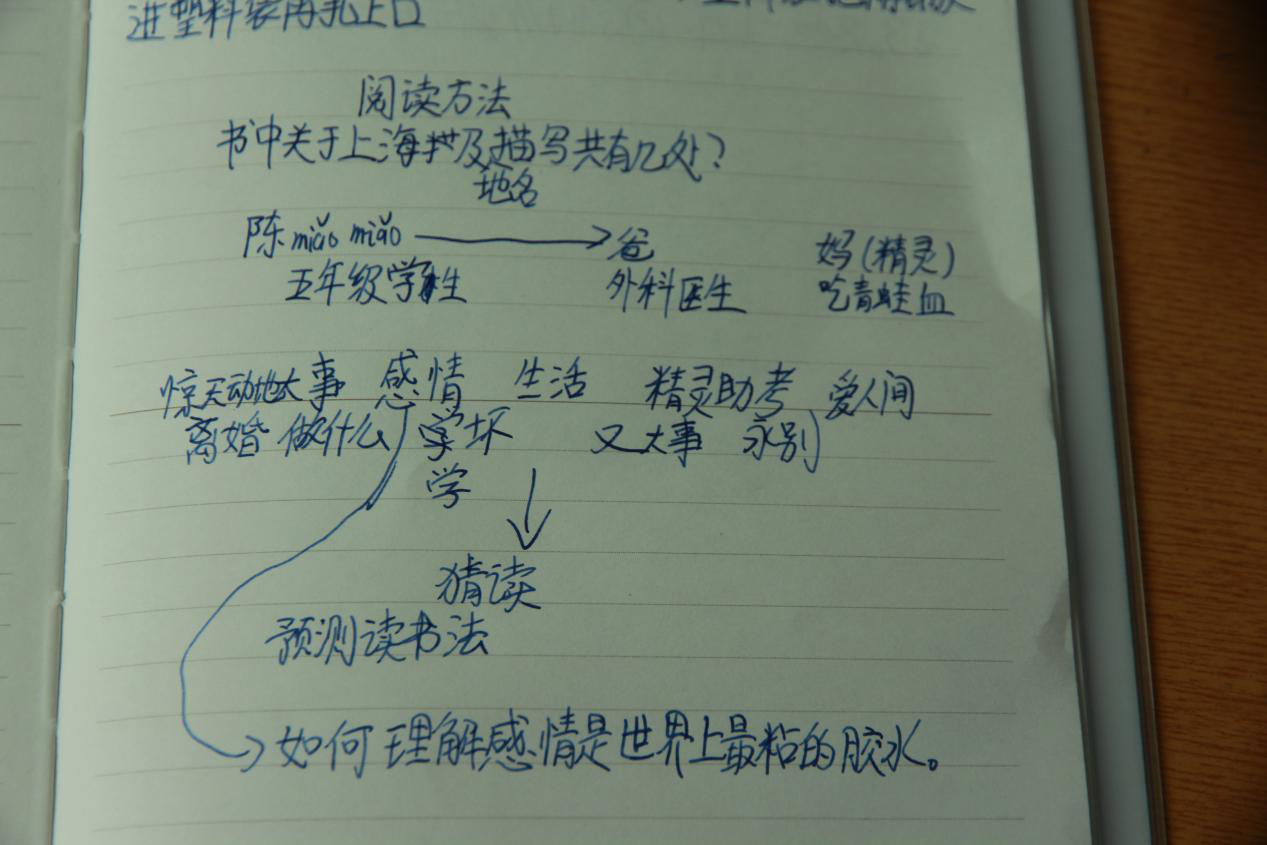 进塑料袋再扎上口
阅读方法
书中关于上海地及描写共有几处？
地名
陈miǎo miǎo 爸 妈(精灵)
五年级学生 外科医生 吃青蛙血
惊天动地大事 感情 生活 精灵助考 爱人间
离婚 做什么 学坏 又大事 永别
学
猜读
预测读书法
如何理解感情是世界上最粘的胶水。